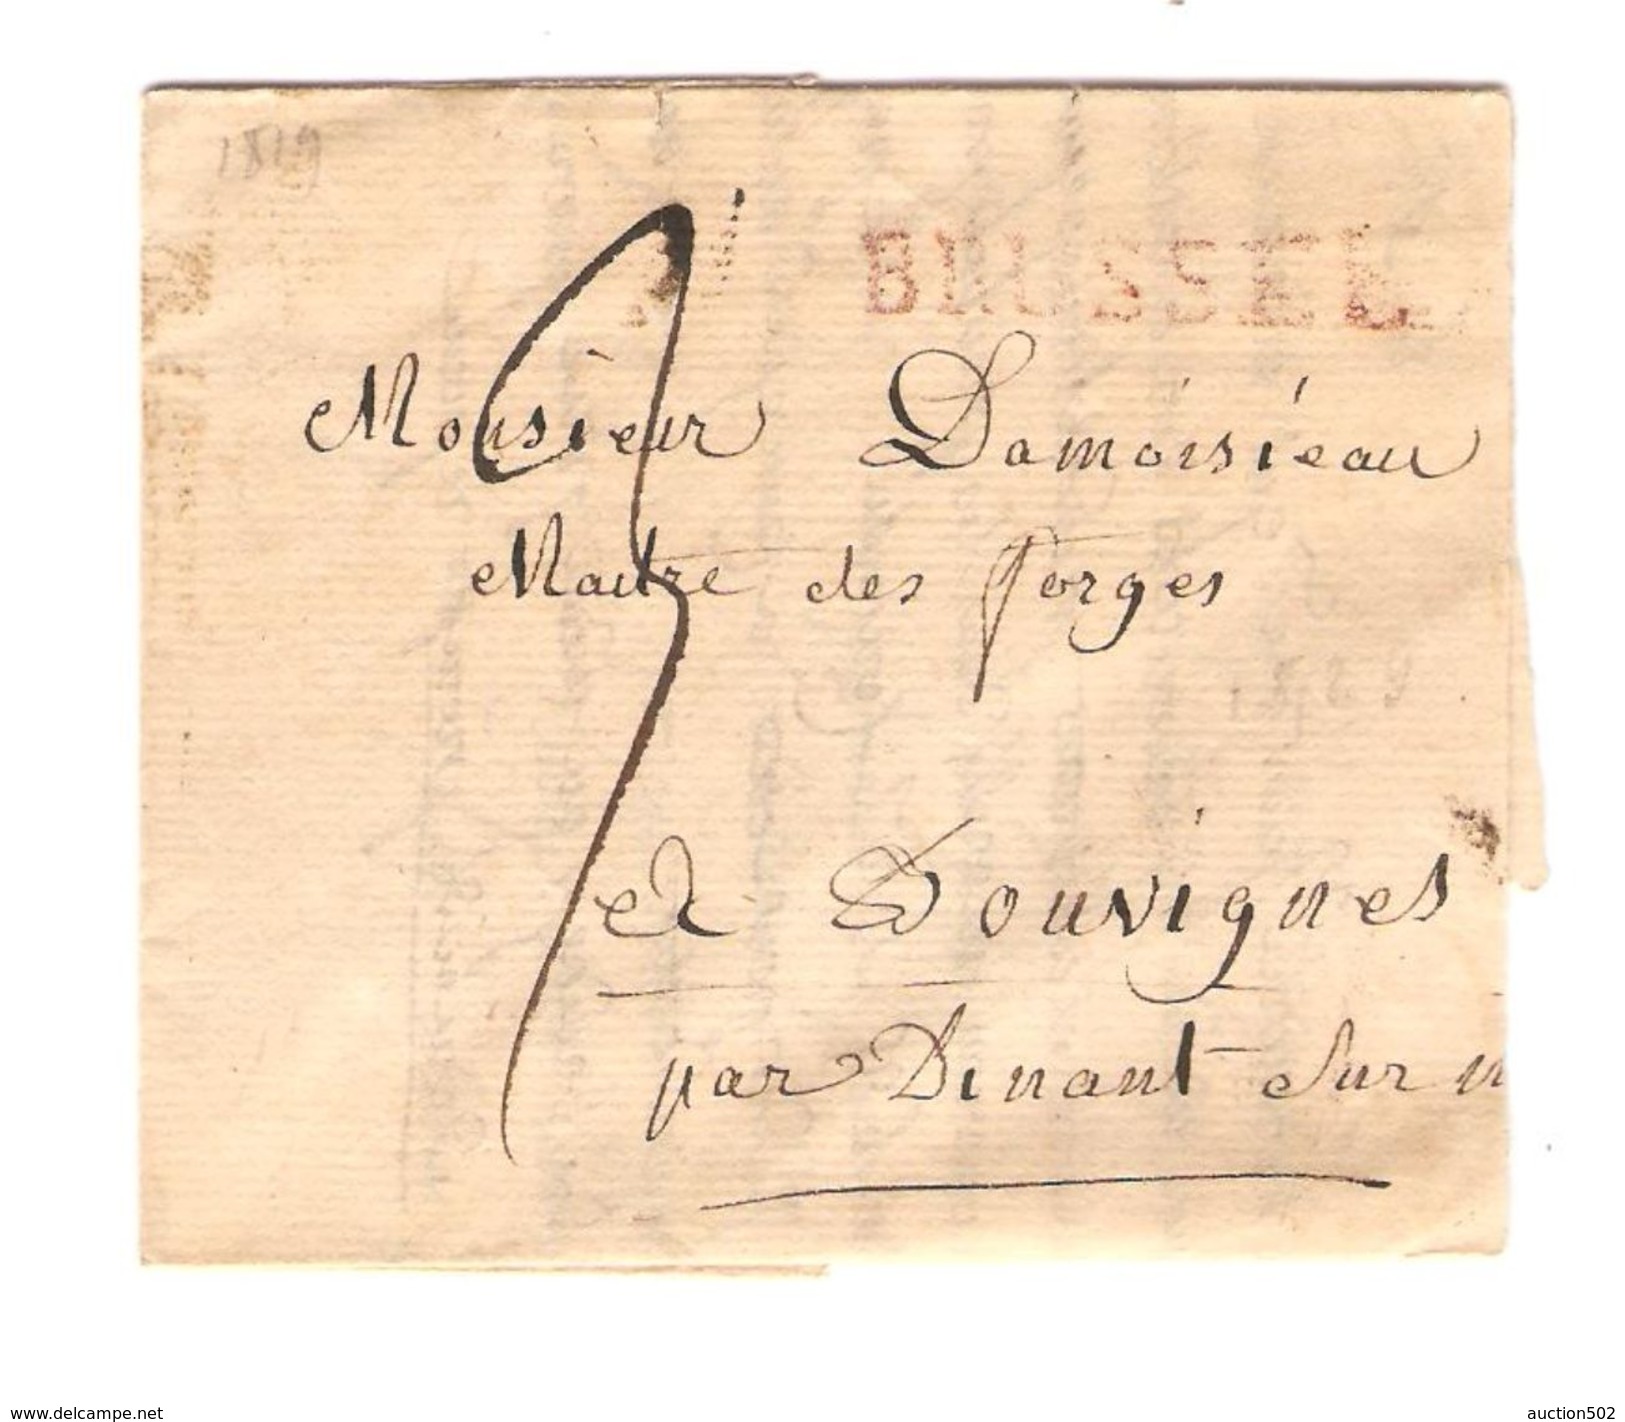 1819
BRUSSEL
3
Monsieur Damoisieau
Maitre des forges
1829
et Bouvignes
par Dinant sur m
www.delcampe.net
auction502